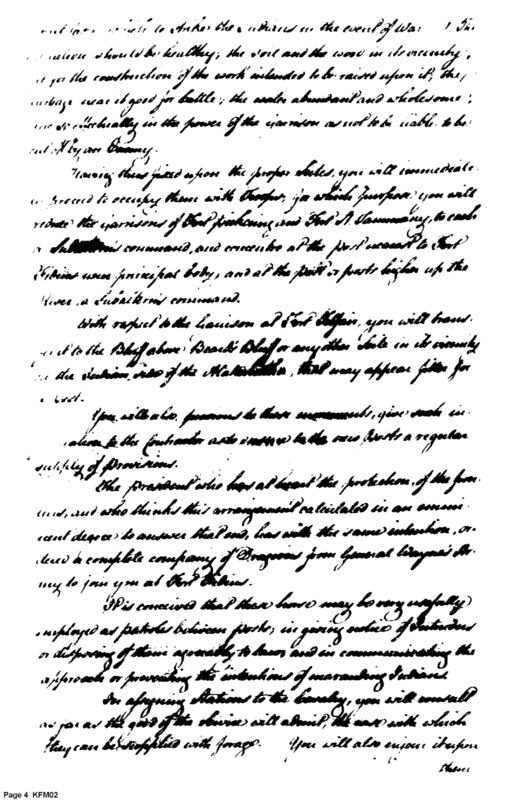 to strike the Indians in the event of War
should be healthy; the soil and the wood in its vicinity,
for the construction of the work intended to be raised upon it; the
near it good for cattle; the water abundant and wholesome;
effectually in the power of the Garrison as not to be liable to be
cut off by an Enemy.
Having thus fixed upon the proper Scites, you will immediate
proceed to occupy them with Troops, for which purpose you will
reduce the Garrisons of Fort and Fort St Tammany, to each
a Subaltern's command, and at the post nearest to Fort
Fidius your principal body, and at the post or posts higher up the
River a Subaltern's command.
With respect to the Garrison at Fort you will
it to the Bluff above Beard's Bluff or any other Scite in its vicinity
on the Indian side of the that may appear fitter for
a Post.
You will also, previous to these movements, give such in
to the Contractor as to to the new Posts a regular
supply of Provisions.
The president who has at heart the protection of the
and who thinks this arrangement calculated in an emi
nent degree to answer that end, has with the same intention, or
dered a complete company of Dragoons from General Wayne's Ar
my to join you at Fort Fidius.
It is conceived that these horse may be very usefully
employed as patroles between posts; in giving notice of Intruders
or disposing of them agreeably to law and in communicating the
approach or preventing the intentions of marauding Indians.
In assigning Stations to the Cavalry, you will consult
as far as the good of the Service will admit, the ease with which
they can be supplied with forage. You will also enjoin it upon
them
Page 4 KFM02